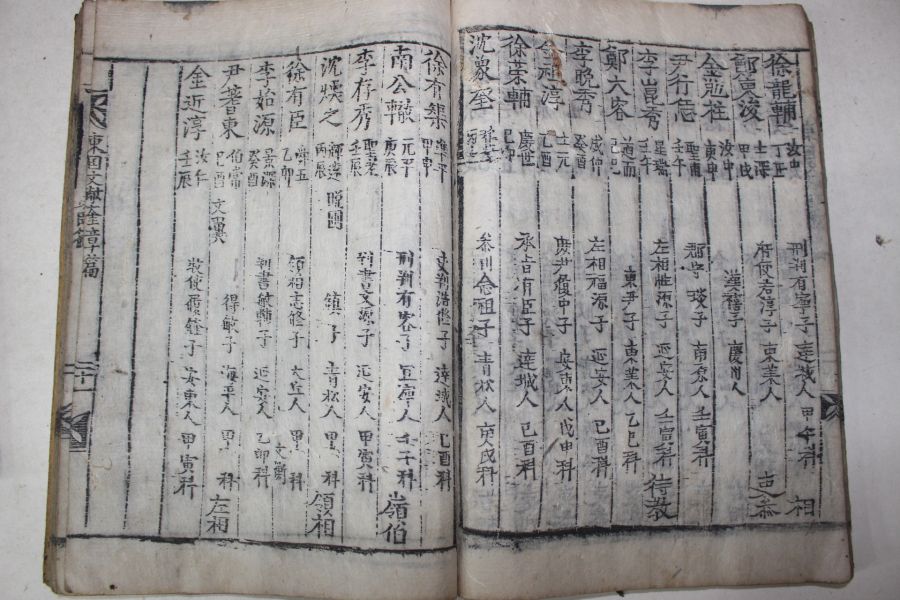 徐龍輔 汝中 丁丑 刑判有寧子 達城人 甲午科 相
鄭東浚 士深 甲戌 府使 淳子 東萊人
金龍柱 汝中 庚申 漢禧子 慶州人
尹行恁 聖甫 壬午 郡守琰子 南原人 壬寅科
李崑秀 星瑞 壬午 左相性源子 延安人 壬寅科 待敎
鄭大容 道而 己巳 東尹子 東萊人 乙巳科
李晩秀 成仲 左相福源子 延安人 己酉科
金祖淳 士元 乙酉 府尹履中子 安東人 戊申科
徐榮輔 慶世 己卯 承旨有臣子 達城人 己酉科
沈象奎 參判念祖子 青松人 庚戌科
徐有榘 準平 甲申 吏判浩修子 達城人 己酉科
南公轍 元平 庚辰 刑判有容子 宜寧人 壬子科 嶺伯
李存秀 聖老 壬辰 判書文源子 延安人 甲寅科
沈煐之 輝遠 丙辰 晚圃 鎮子 青松人 甲 科 領相
徐有臣 舜五 乙卯 領相志修子 大丘人 甲 科 文衡
李始源 景深 癸酉 判書敏輔子 延安人 乙卯科
尹蓍東 伯常 己酉 文翼 得敏子 海平人 甲 科 左相
金近淳 汝午 壬辰 牧使履鐩子 安東人 甲寅科
東國文獻筌章篇